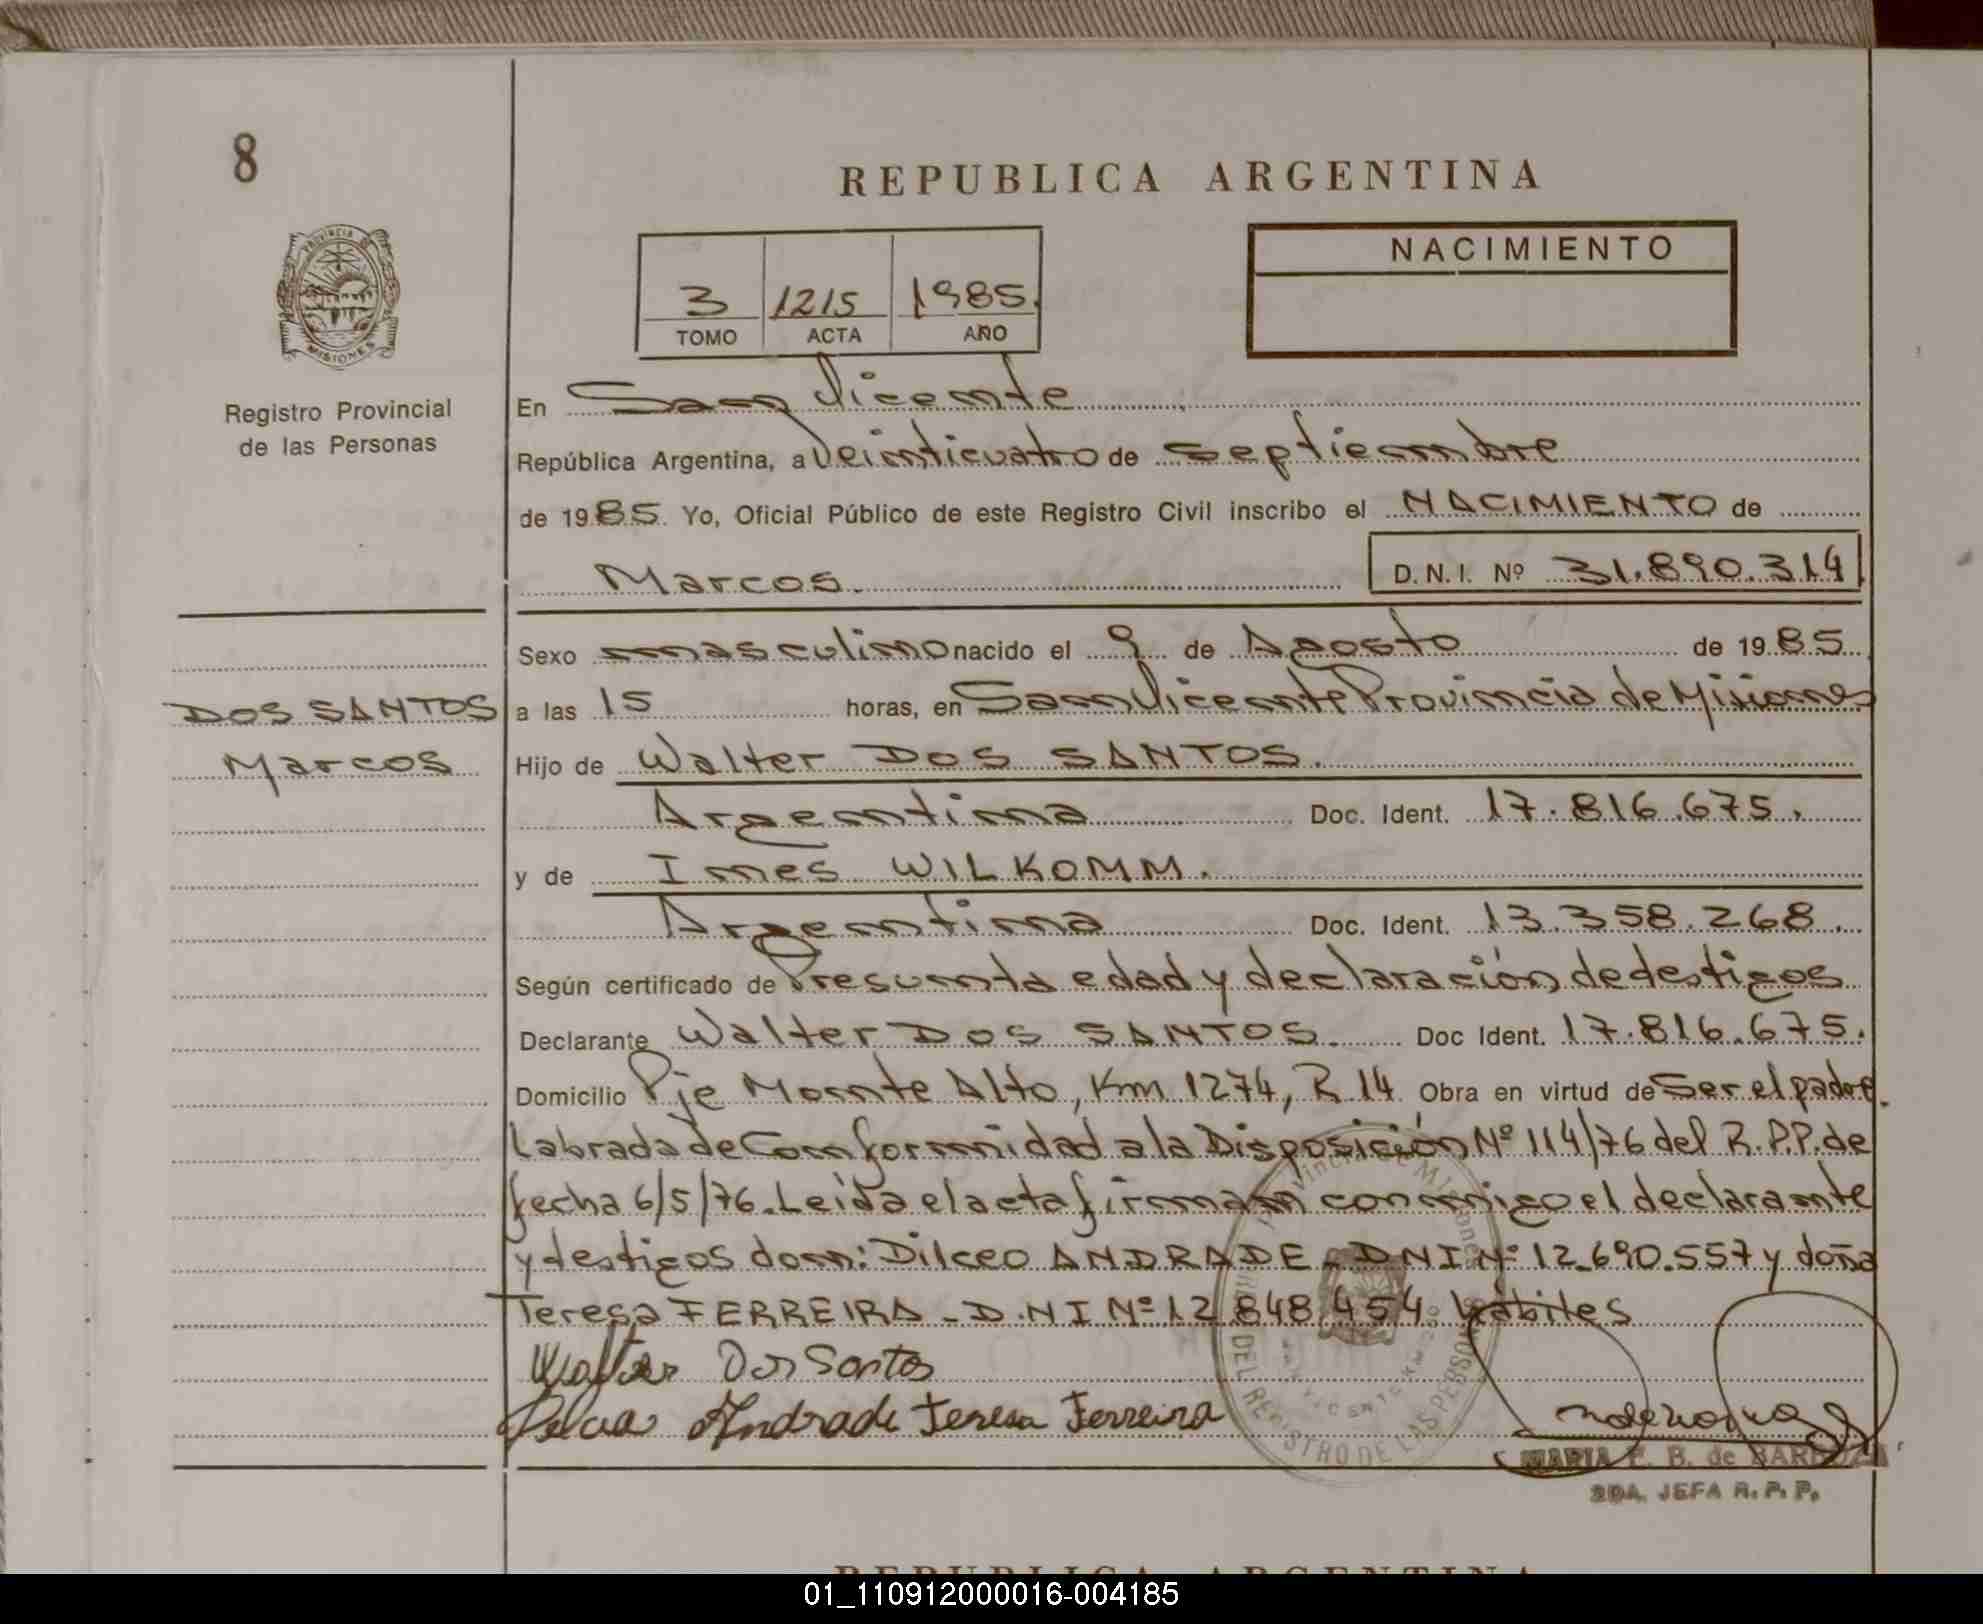 8
REPUBLICA ARGENTINA
PROVINCIA DE
MISIONES
Registro Provincial
de las Personas
3 1215 1985.
TOMO ACTA AÑO
NACIMIENTO
En San Vicente
República Argentina, a Veinticuatro de Septiembre
de 1985. Yo, Oficial Público de este Registro Civil inscribo el NACIMIENTO de
Marcos. D.N.I. Nº 31.890.314
Sexo masculino nacido el 9 de Agosto de 1985
DOS SANTOS
Marcos
a las 15 horas, en San Vicente Provincia de Misiones
Hijo de Walter DOS SANTOS.
Argentina Doc. Ident. 17.816.675.
y de Ines WILKOMM.
Argentina Doc. Ident. 13.358.268.
Según certificado de Presunta edad y declaración de testigos
Declarante Walter DOS SANTOS. Doc Ident. 17.816.675.
Domicilio Pje Monte Alto, Km 1274, R 14 Obra en virtud de Ser el padre.
Labrada de Conformidad a la Disposición Nº 114/76 del R.P.P. de
fecha 6/5/76. Leida el acta firman conmigo el declarante
y testigos don: Dilceo ANDRADE - DNI Nº 12.690.557 y doña
Teresa FERREIRA - D.N I Nº 12 848.454 habiles
Walter Dos Santos
Andrade Teresa Ferreira
DEL REGISTRO DE LAS PERSONAS
MARIA E. B. de BARBOZA
2DA. JEFA R. P. P.
REPUBLICA ARGENTINA
01_110912000016-004185